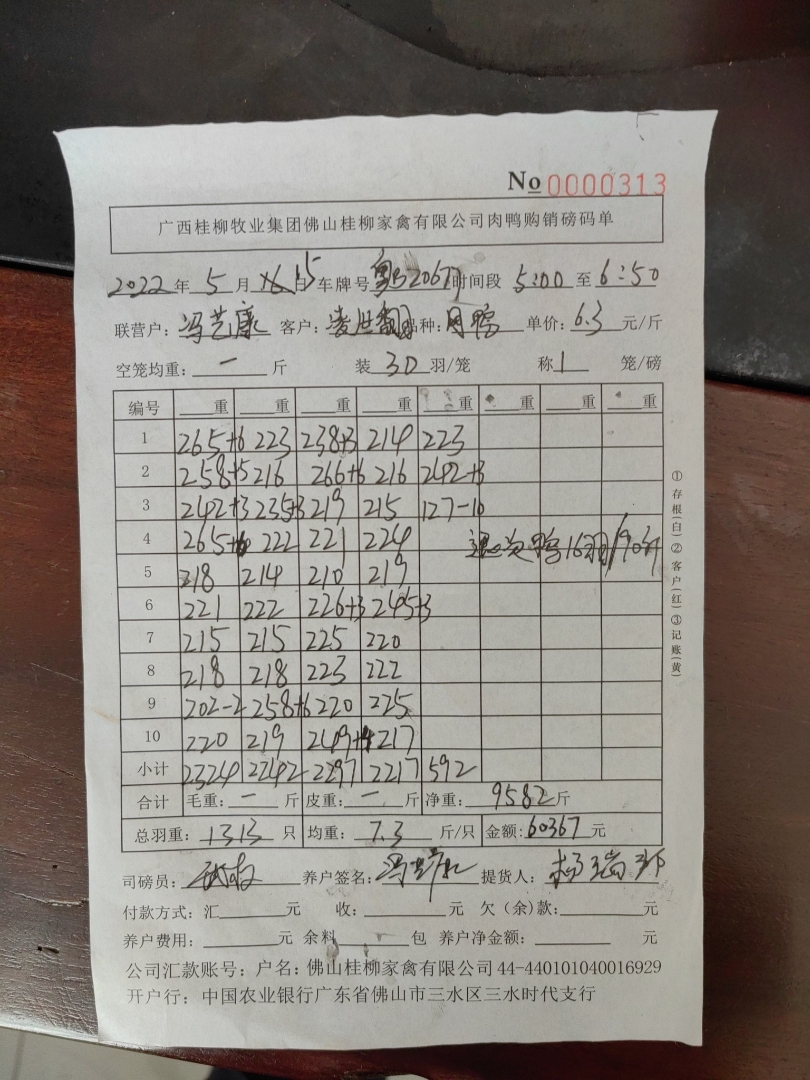 No 0000313
广西桂柳牧业集团佛山桂柳家禽有限公司肉鸭购销磅码单
2022年 5月 15日 车牌号 粤 2067 时间段 5:00 至 6:50
联营户: 冯艺康 客户: 品种: 肉鸭 单价: 6.3 元/斤
空笼均重: 一 斤 装 30 羽/笼 称 1 笼/磅
编号 重 重 重 重 重 重 重 重
1 265+6 223 238+3 214 223
2 258+5 216 266+6 216 242+3
3 242+3 235+3 219 215 127-10
4 265+6 222 221 224 鸭16 /90斤
5 218 214 210 219
6 221 222 226+3 245+3
7 215 215 225 220
8 218 218 223 222
9 202-2 258+6 220 225
10 220 219 249+4 217
小计 2324 2242 2297 2217 592
合计 毛重: 一 斤 皮重: 一 斤 净重: 9582 斤
总羽重: 1313 只 均重: 7.3 斤/只 金额: 60367 元
司磅员: 养户签名: 冯艺康 提货人: 杨
付款方式: 汇 元 收: 元 欠(余)款: 元
养户费用: 元 余料 包 养户净金额: 元
公司汇款账号: 户名: 佛山桂柳家禽有限公司 44-440101040016929
开户行: 中国农业银行广东省佛山市三水区三水时代支行
①存根(白)②客户(红)③记账(黄)